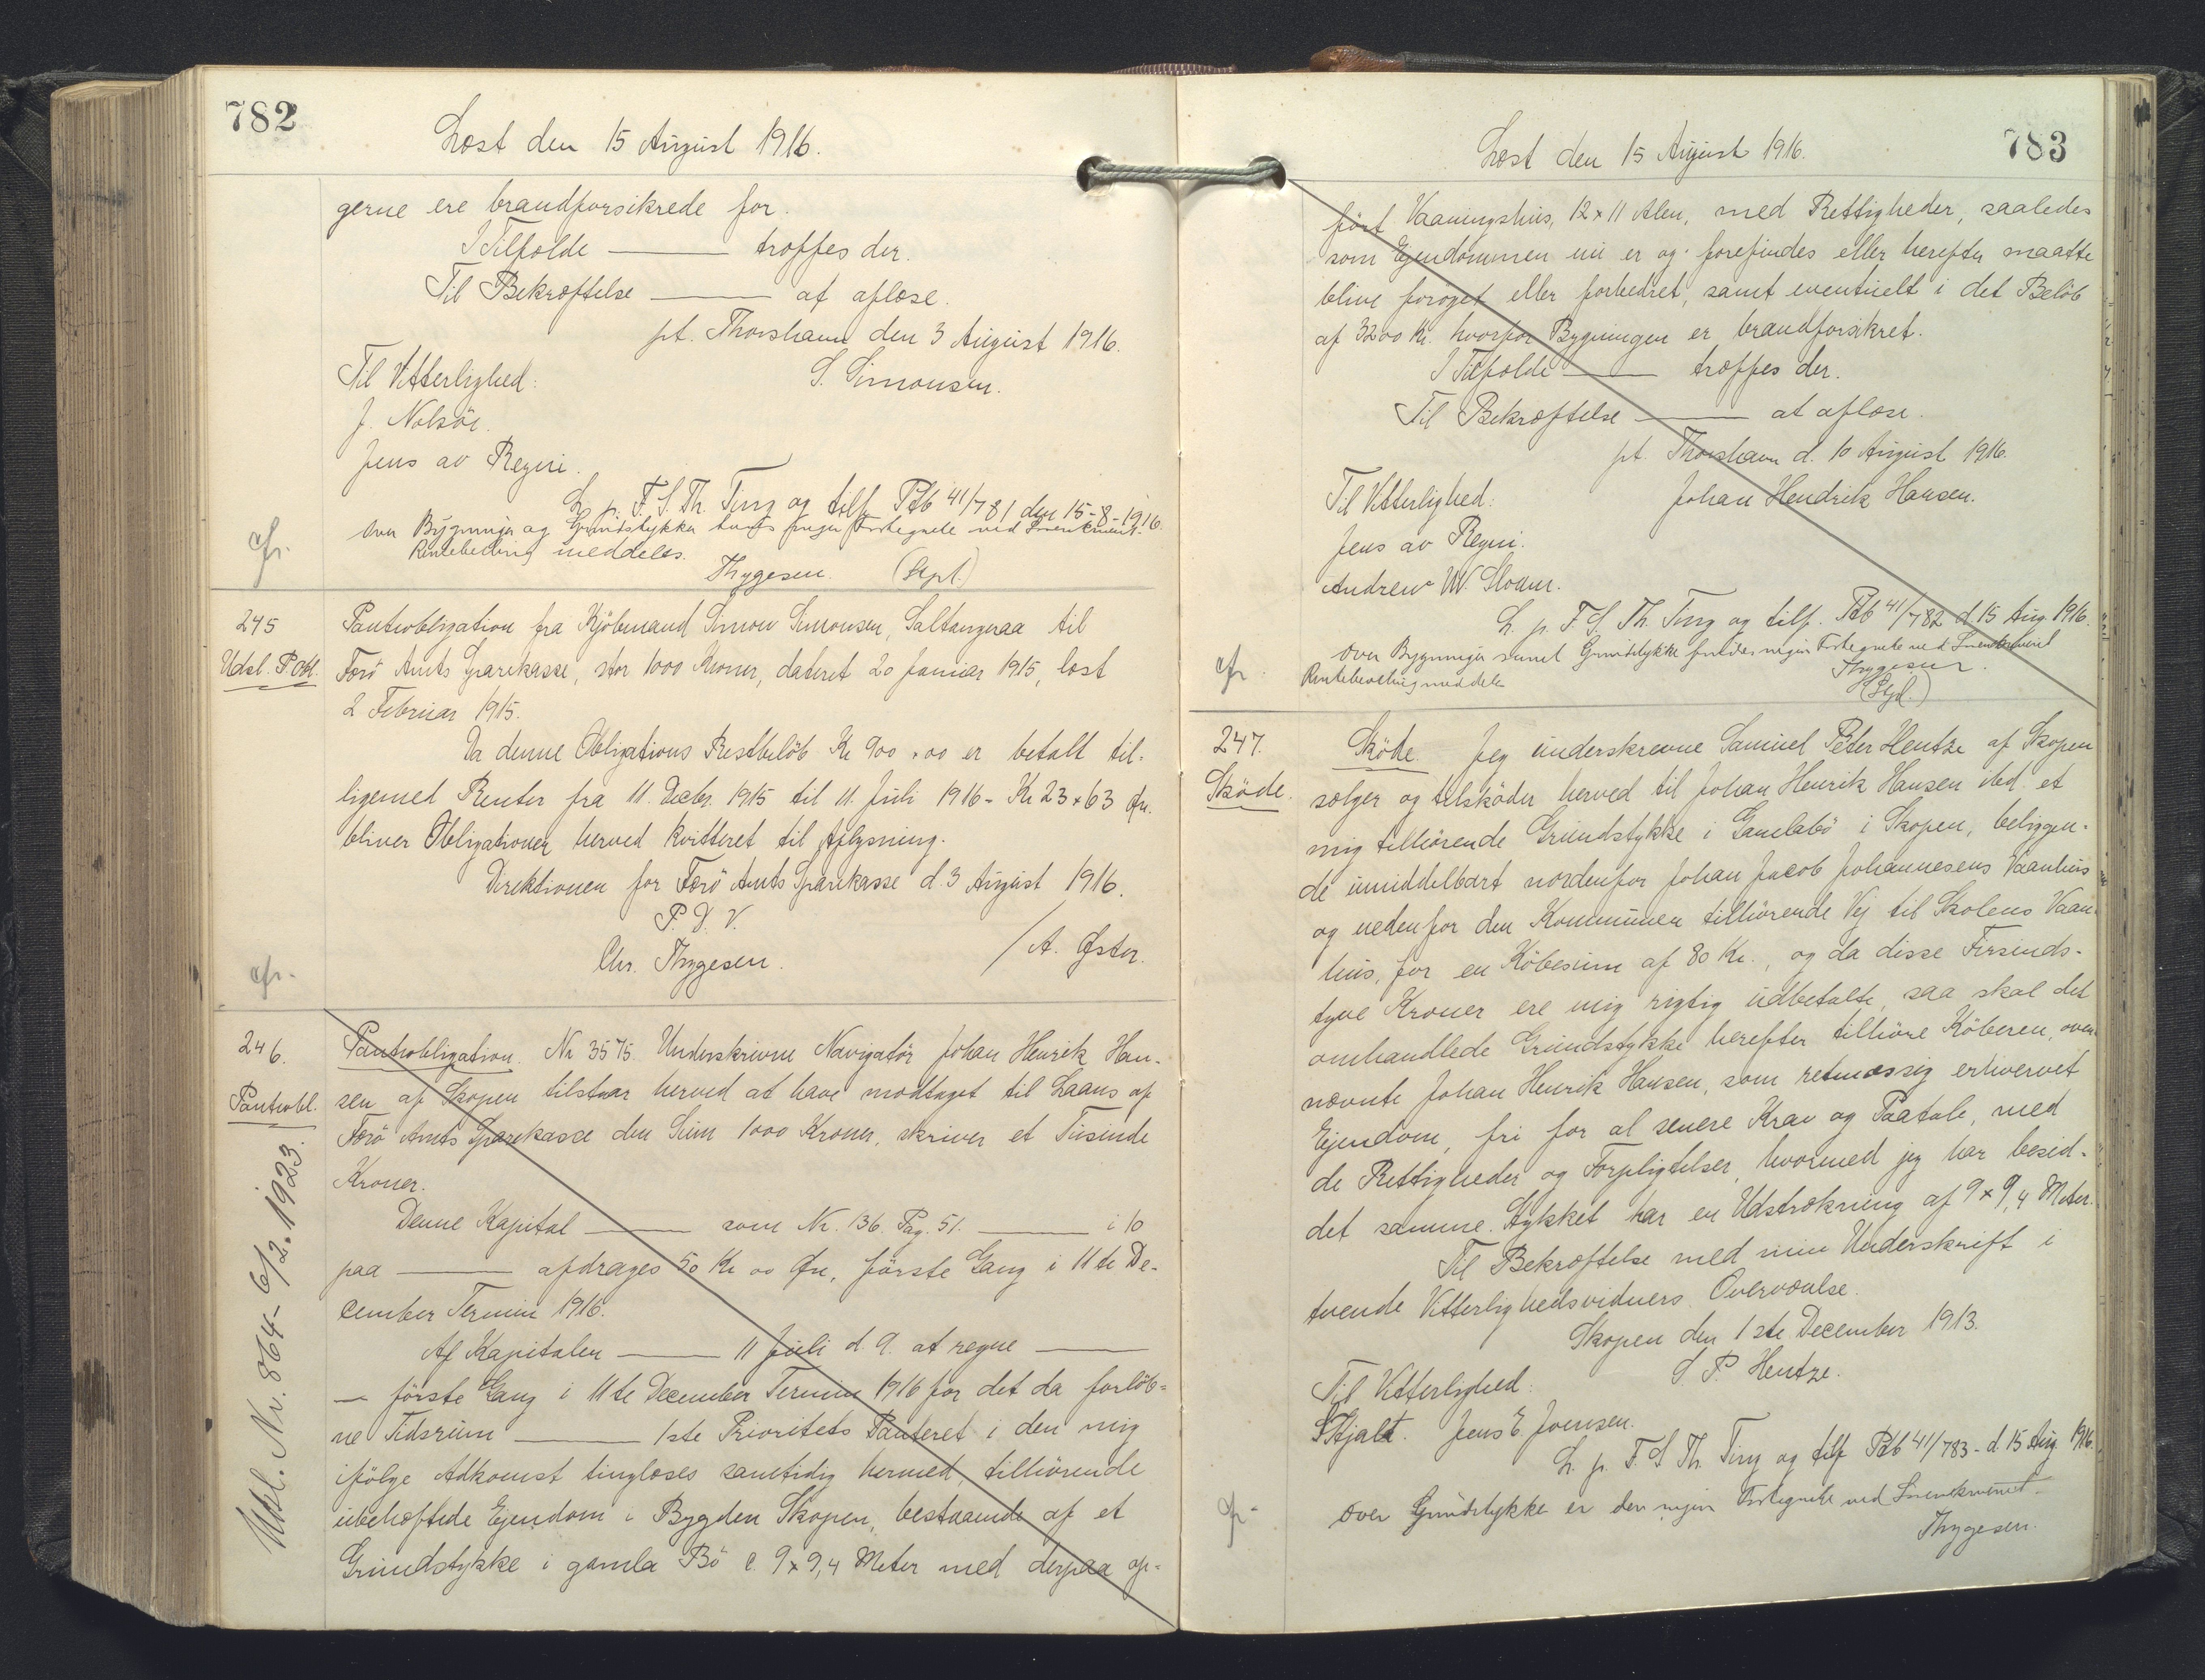 782
Læst den 15 August 1916.
gerne ere brandforsikrede for.
I Tilfælde ——— træffes der.
Til Bekræftelse ——— at aflæse.
pt. Thorshavn den 3 August 1916.
Til Vitterlighed: S. Simonsen.
J. Nolsöe.
Jens av Reyni.
L. p. F. S. Th. Ting og tilf. Ptb 41/781 den 15-8-1916.
Over Bygninger og Grundstykke
meddeles.
Thygesen. (Stpl.)
cfr.
245
Udsl. P.Obl.
Pantobligation fra Kjöbmand Simon Simonsen, Saltangeraa til
Færö Amts Sparekasse, stor 1000 Kroner, dateret 20 Januar 1915, læst
2 Februar 1915.
Da denne Obligations Restbelöb Kr 900 . 00 er betalt til-
ligemed Renter fra 11. Decbr. 1915 til 11. Juli 1916 - Kr 23 × 63 Øre.
bliver Obligationen herved kvitteret til Aflysning.
Direktionen for Færö Amts Sparekasse d. 3 August 1916.
P. D. V.
Chr. Thygesen. / A. Øster.
cfr.
246.
Pantobl.
Udsl. Nr. 864 - 6/2. 1923.
Pantobligation. Nr 3575. Underskrivne Navigatör Johan Henrik Han-
sen af Skopen tilstaar herved at have modtaget til Laans af
Færö Amts Sparekasse den Sum 1000 Kroner, skriver et Tusinde
Kroner.
Denne Kapital ——— som Nr. 136. Pag. 51. ——— i 10
paa ——— afdrages 50 Kr 00 Øre, förste Gang i 11te De-
cember Termin 1916.
Af Kapitalen ——— 11 Juli d. A. at regne ———
— förste Gang i 11te December Termin 1916 for det da forlöb-
ne Tidsrum ——— 1ste Prioritets Panteret i den mig
ifölge Adkomst tinglæses samtidig hermed, tilhörende
ubehæftede Ejendom i Bygden Skopen, bestaaende af et
Grundstykke i gamla Bö c. 9 × 9,4 Meter med derpaa op-
783
Læst den 15 August 1916.
fört Vaaningshus, 12 × 11 Alen, med Rettigheder, saaledes
som Ejendommen nu er og forefindes eller herefter maatte
blive foröget eller forbedret, samt eventuelt i det Belöb
af 3200 Kr. hvorfor Bygningen er brandforsikret.
I Tilfælde ——— træffes der.
Til Bekræftelse ——— at aflæse.
pt. Thorshavn d. 10 August 1916.
Til Vitterlighed: Johan Hendrik Hansen.
Jens av Reyni.
Andrew W. Sloan.
L. p. F. S. Th. Ting og tilf. Ptb 41/782 d. 15 Aug. 1916.
Over Bygninger samt Grundstykke findes ingen
Thygesen.
(Stpl.)
cfr.
247.
Sköde.
Sköde. Jeg underskrevne Samuel Peter Hentze af Skopen
sælger og tilsköder herved til Johan Henrik Hansen ibd. et
mig tilhörende Grundstykke i Gamlabö i Skopen, beliggen-
de umiddelbart nordenfor Johan Jacob Johannesens Vaanhus
og nedenfor den Kommunen tilhörende Vej til Skolens Vaan-
hus, for en Köbesum af 80 Kr., og da disse Firsinds-
tyve Kroner ere mig rigtig udbetalte, saa skal det
omhandlede Grundstykke herefter tilhöre Köberen, oven-
nævnte Johan Henrik Hansen, som retmæssig erhvervet
Ejendom, fri for al senere Krav og Paatale, med
de Rettigheder og Forpligtelser, hvormed jeg har besid-
det samme. Stykket har en Udstrækning af 9 × 9,4 Meter.
Til Bekræftelse med min Underskrift i
tvende Vitterlighedsvidners Overværelse.
Skopen den 1ste December 1913.
Til Vitterlighed: S. P. Hentze.
S Hjalt. Jens E. Joensen.
L. p. F. S Th. Ting og tilf Ptb 41/783 - d. 15 Aug. 1916.
Over Grundstykke er der ingen
Thygesen.
cfr.